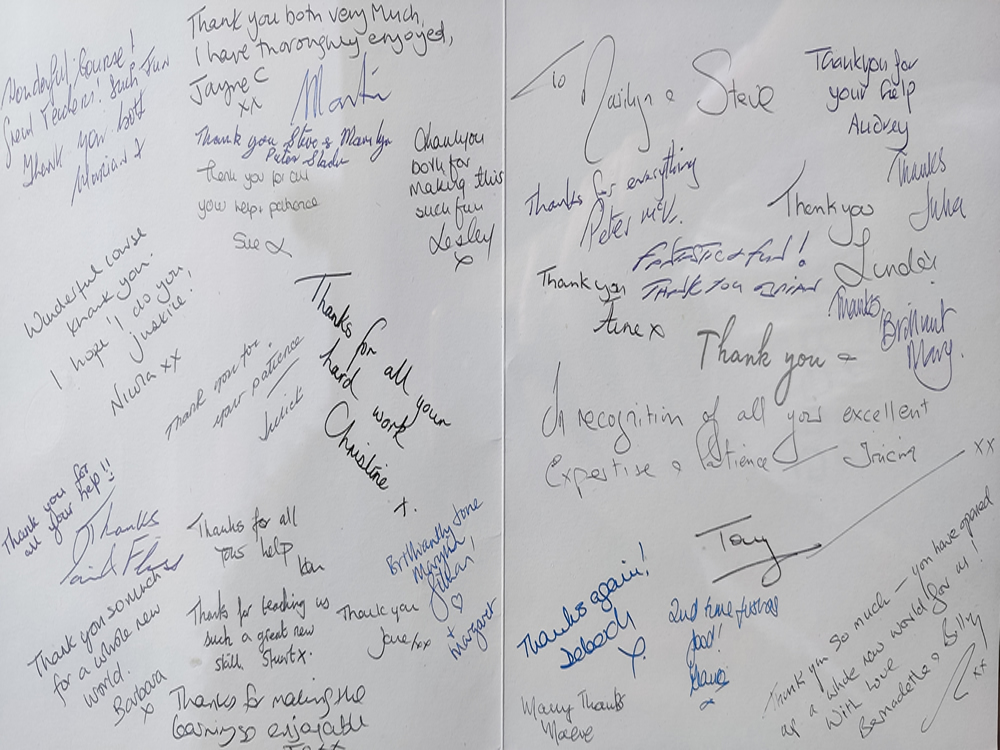 Thank you both very Much,
I have thoroughly enjoyed,
Jayne C
xx
Martin
Wonderful Course!
Great Teachers! Such Fun
Thank you both
Marian x
Thank you Steve & Marilyn
Peter
Thank you for all
your help & patience
Sue x
Thankyou
both for
making this
such fun
Lesley
x
Wonderful course
thank you.
I hope I do you,
justice!
Nicola xx
Thank you for
your patience
Thanks
for all your
hard work
Christine
x.
Thank you for
all your help!!
Thanks
Thanks for all
your help
Thank you so much
for a whole new
world.
Barbara
x
Thanks for teaching us
such a great new
skill. Stuart x.
Thank you
Jane xx
Brilliantly done
♡
+
Margaret
Thanks for making the
learning so enjoyable
To Marilyn & Steve
Thankyou for
your help
Audrey
Thanks for everything
Peter McV.
Thanks
Julia
Thank you
Linda x
Fantastic & fun!
Thank you
Thank you
June x
Thanks,
Brilliant
Mary.
Thank you =
In recognition of all your excellent
Expertise & Patience
xx
Tony
Thanks again!
Deborah
x
2nd time
good!
x
Many Thanks
Maeve
Thank you so much – you have opened
up a whole new world for us!
With love
Bernadette & Billy
xx